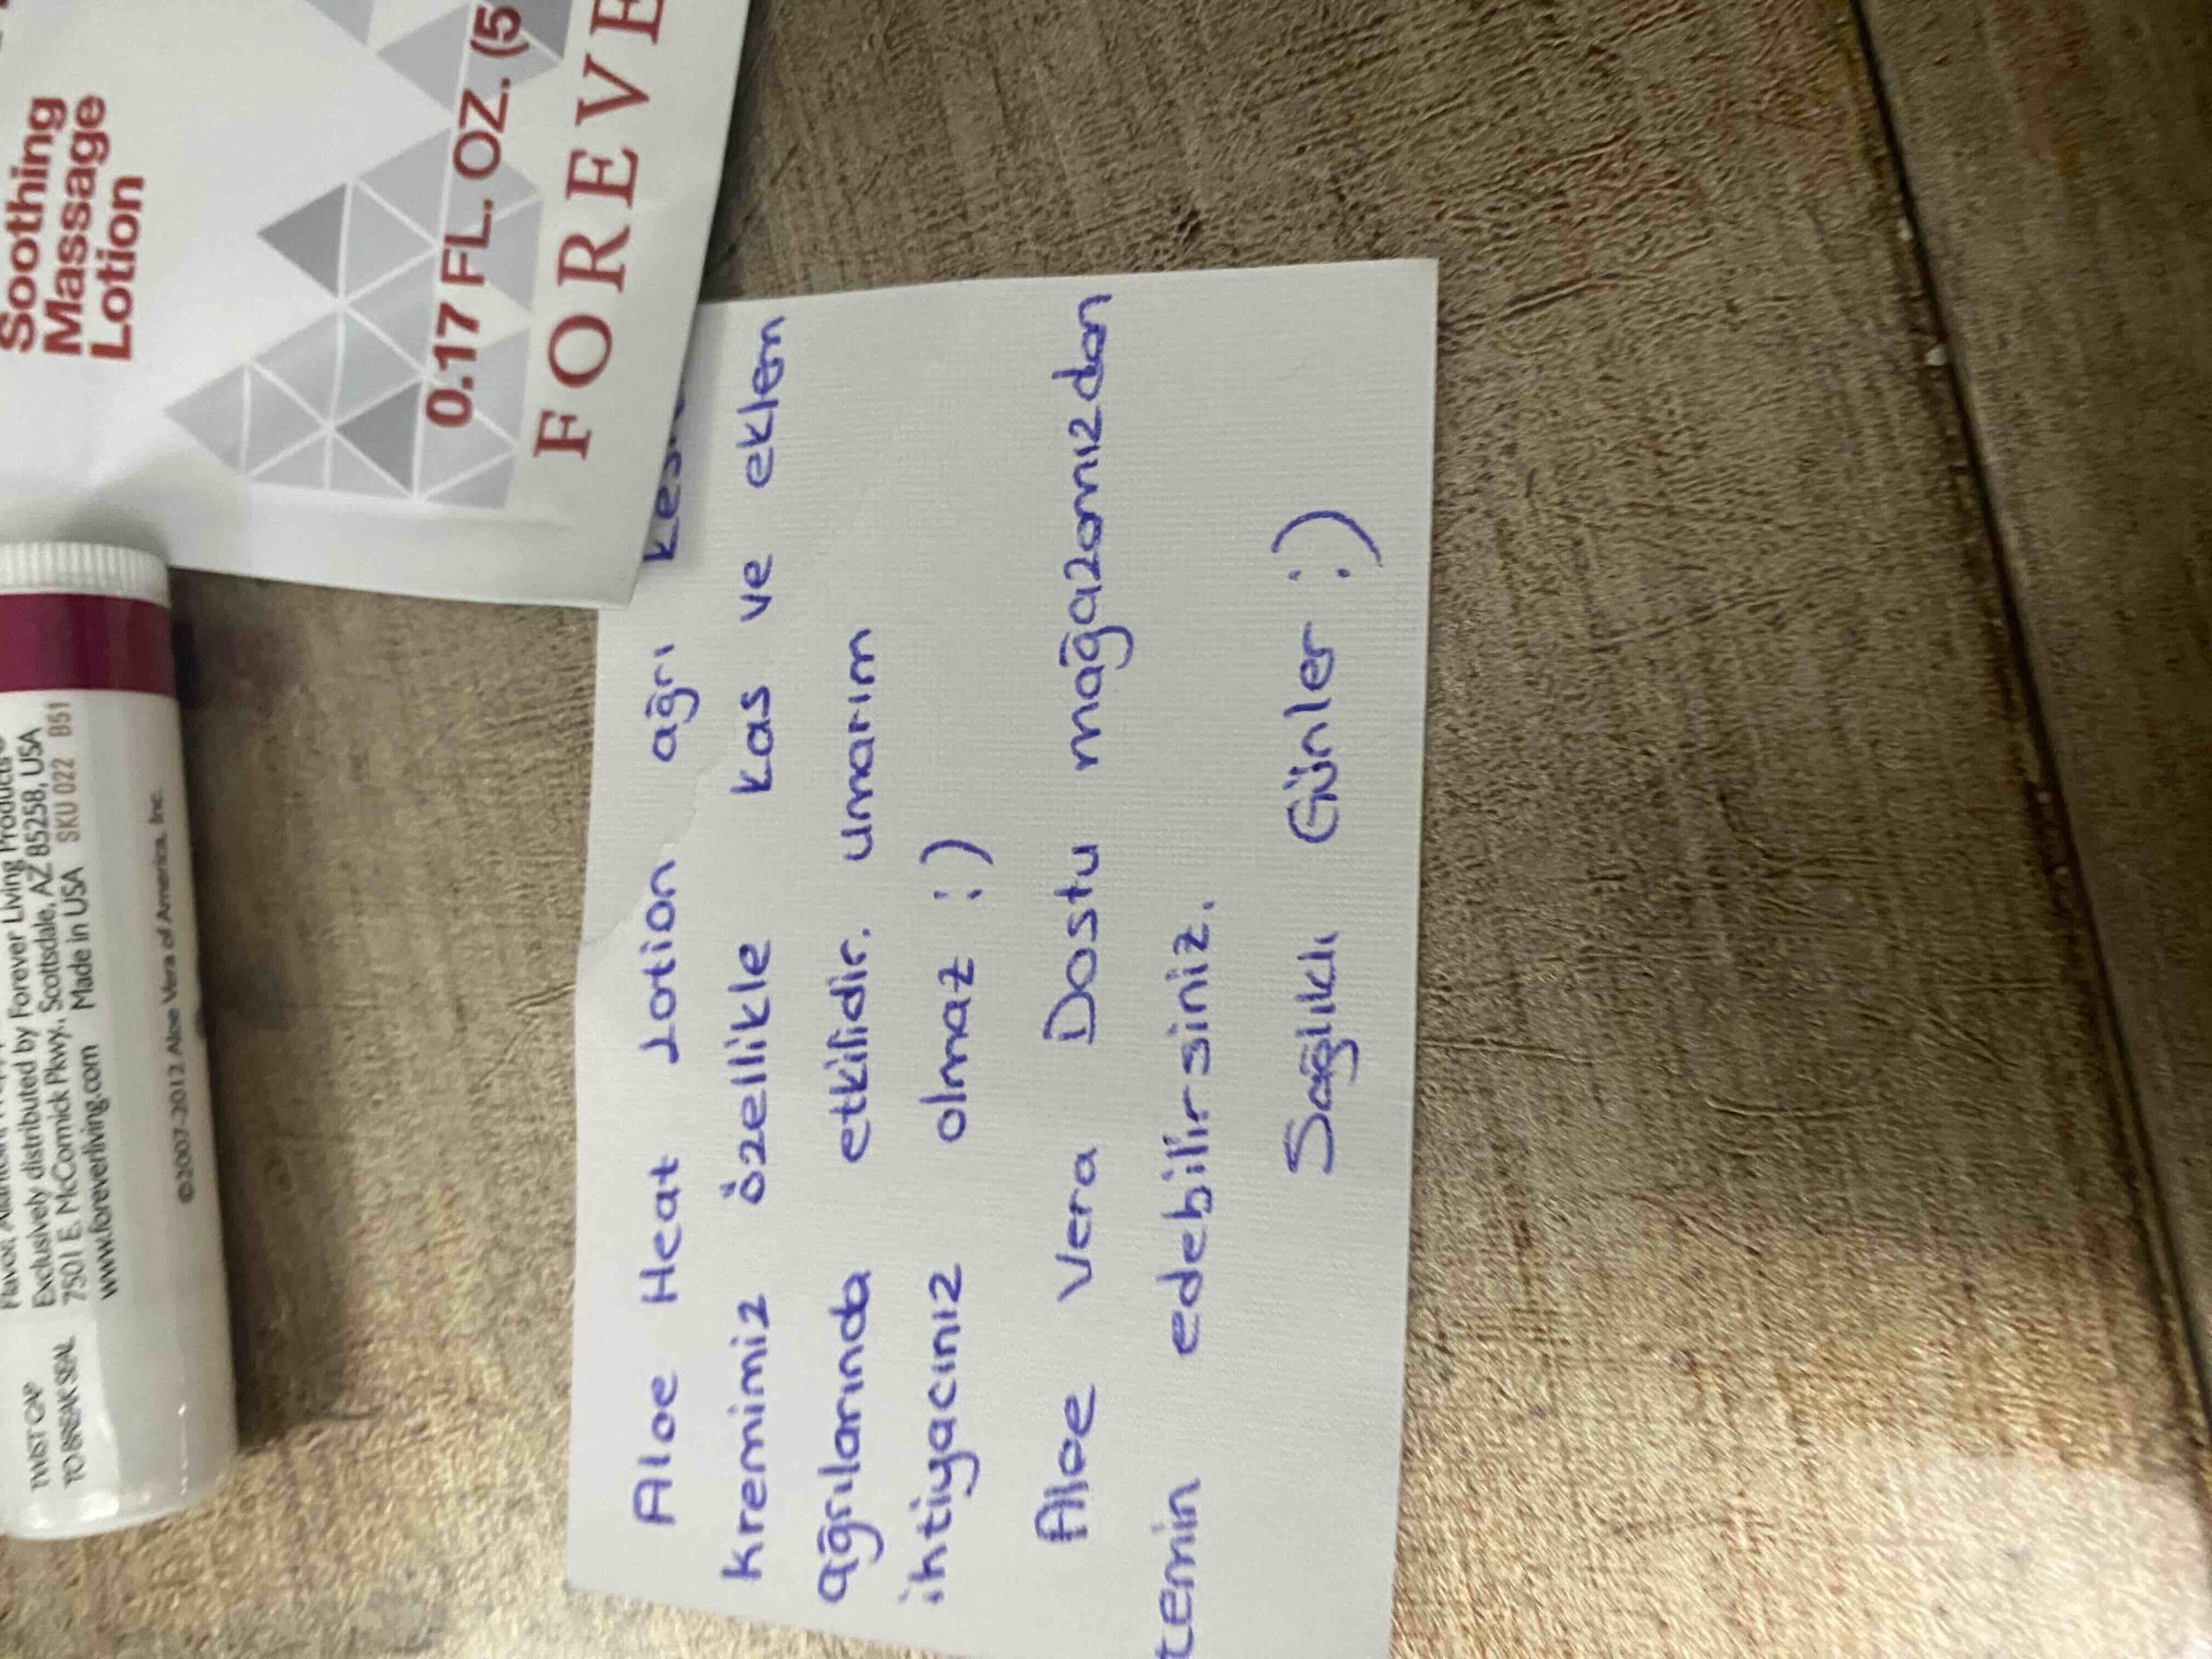 Soothing
Massage
Lotion
0.17 FL. OZ. (5
FOREVE
Exclusively distributed by Forever Living Products
7501 E. McCormick Pkwy., Scottsdale, AZ 85258, USA
www.foreverliving.com Made in USA SKU 022 B51
©2007-2012 Aloe Vera of America, Inc.
TWIST CAP
TO BREAK SEAL
Aloe Heat Lotion ağrı
kremimiz özellikle kas ve eklem
ağrılarında etkilidir. umarım
ihtiyacınız olmaz :)
Aloe Vera Dostu mağazamızdan
temin edebilirsiniz.
Sağlıklı Günler :)